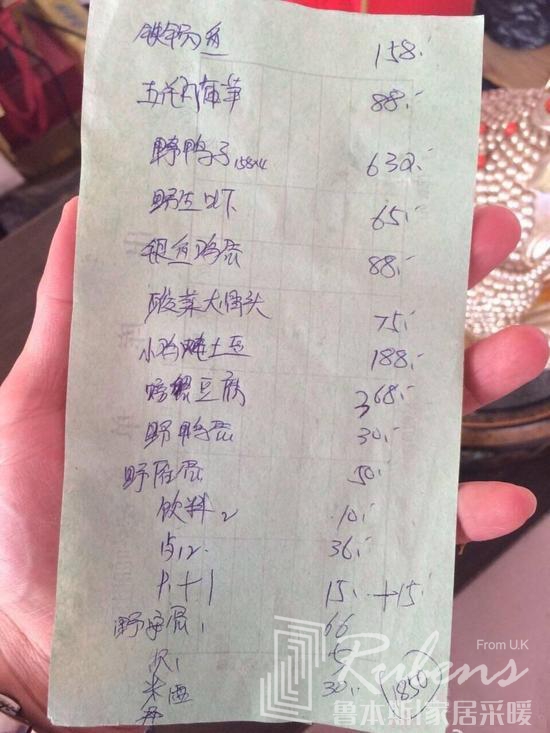 铁锅鱼 158.-
五花肉 88.-
野鸭子 158×4 632.-
野生 65.-
银鱼鸡蛋 88.-
酸菜大骨头 75.-
小鸡炖土豆 188.-
螃蟹豆腐 368.-
野鸭蛋 30.-
野 蛋 50.-
饮料2 10.-
12. 36.-
15.- +15.-
野 蛋 66
5
米酒 30.- 1850
From U.K
Rubens
鲁本斯家居采暖